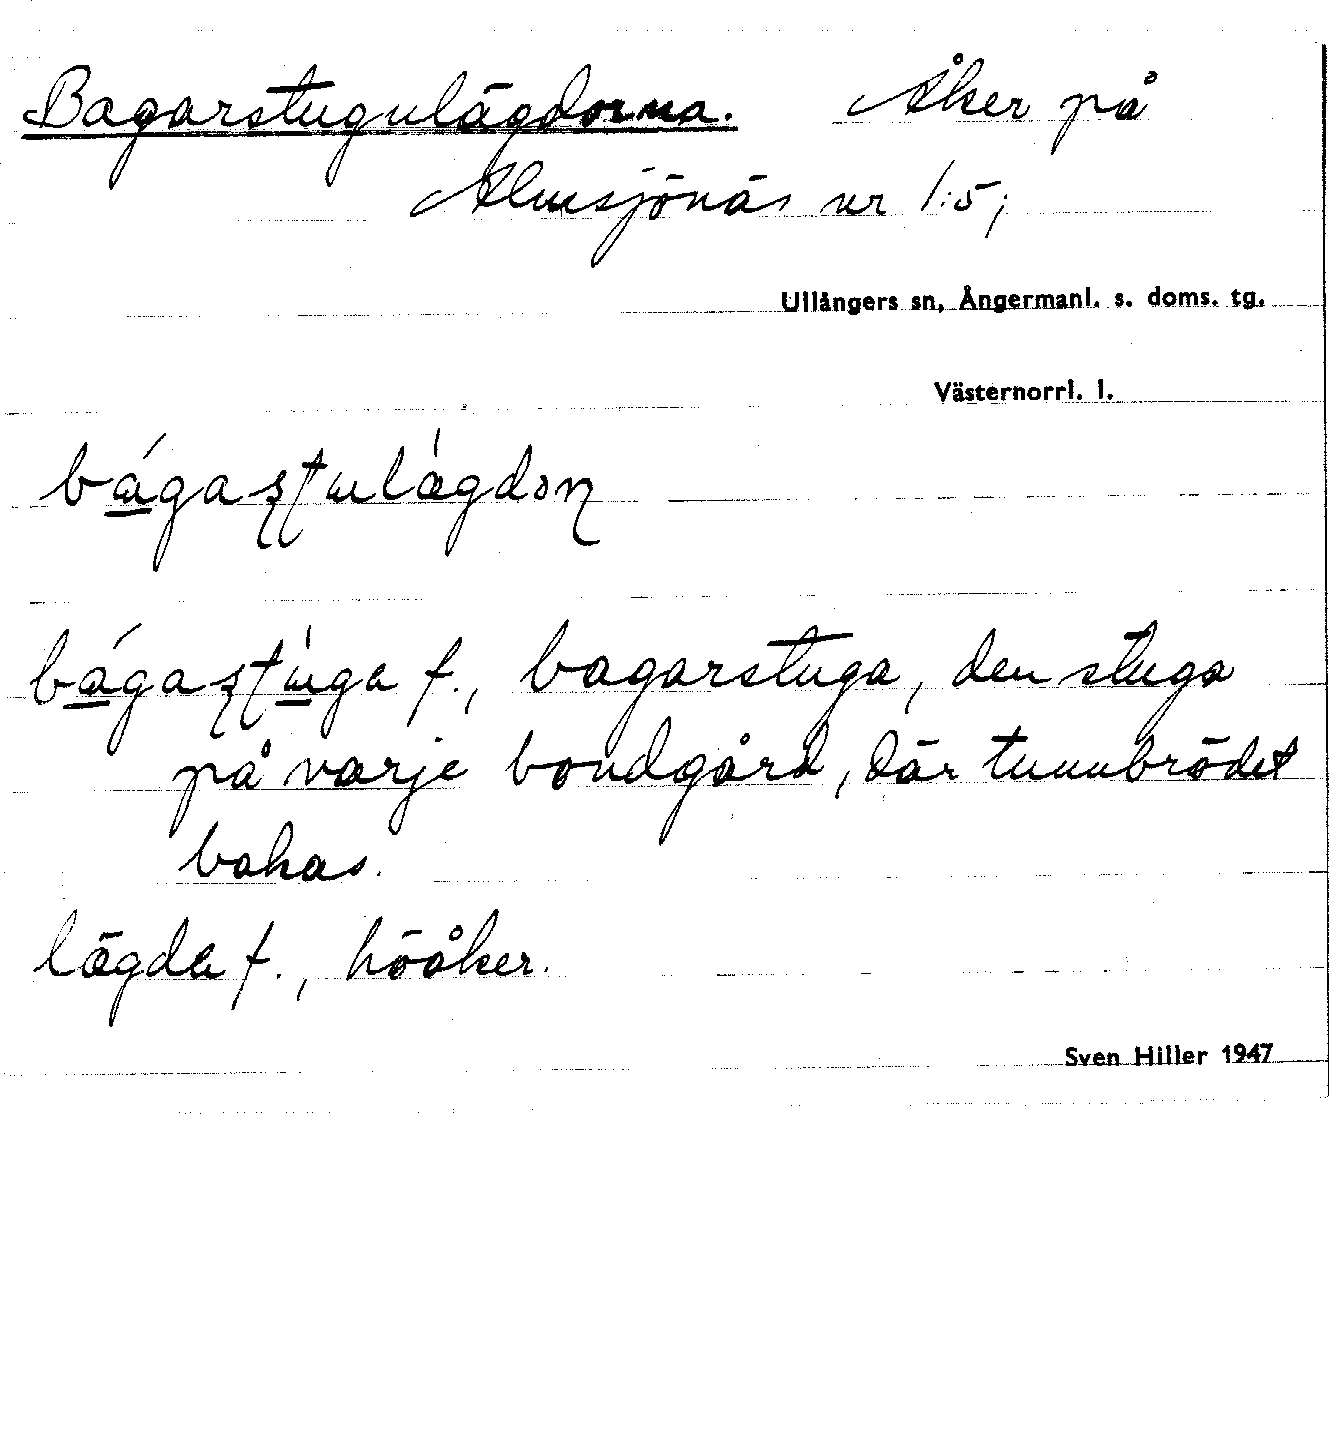 Bagarstugulägdorna. Åker på
Älmsjönäs nr 1:5;
Ullångers sn, Ångermanl. s. doms. tg.
Västernorrl. l.
bágaʂʈulägdoɳ
bágaʂʈúga f., bagarstuga, den stuga
på varje bondgård, där tunnbrödet
bakas.
lägda f., höåker.
Sven Hiller 1947